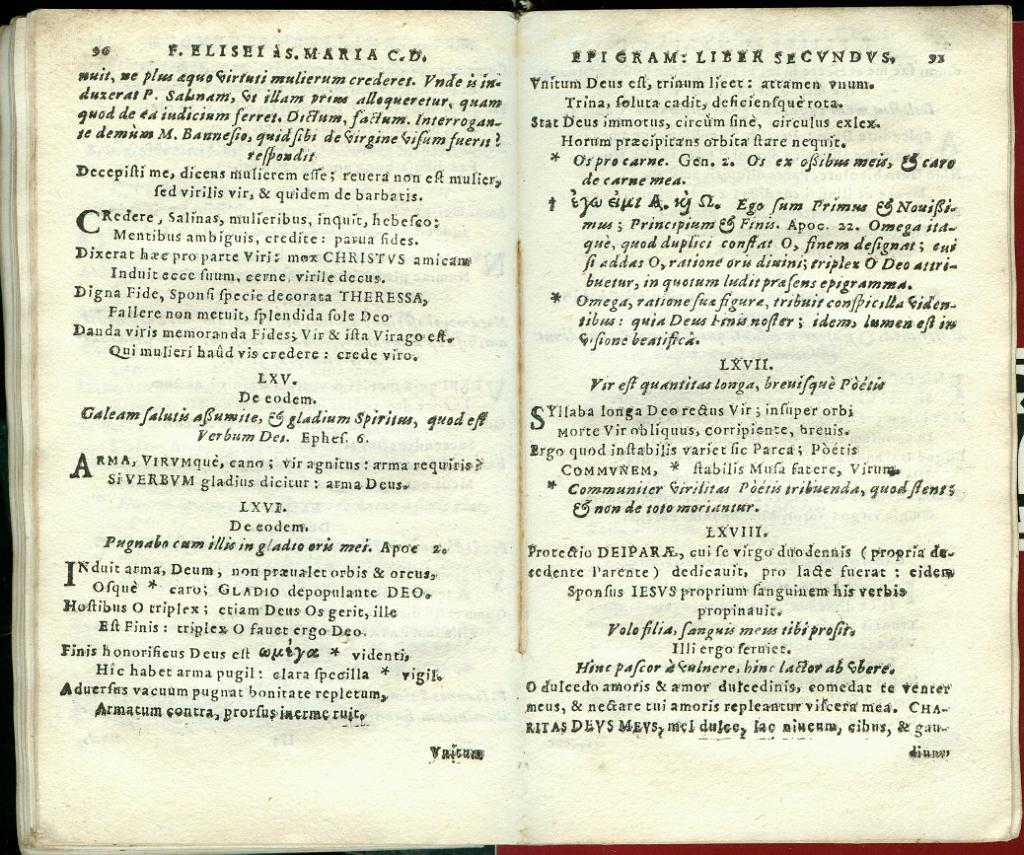 96 F. ELISEI àS. MARIA C.D.
nuit, ne plus æquo virtuti mulierum crederet. Vnde is in-
duxerat P. Salinam, vt illam prius alloqueretur, quam
quod de ea iudicium ferret. Dictum, factum. Interrogan-
te demùm M. Bannesio, quid sibi de virgine visum fuerit?
respondit
Decepisti me, dicens mulierem esse; reuera non est mulier,
sed virilis vir, & quidem de barbatis.
CRedere, Salinas, mulieribus, inquit, hebesco:
Mentibus ambiguis, credite: parua fides.
Dixerat hæc pro parte Viri: mox CHRISTVS amicam
Induit ecce suum, cerne, virile decus.
Digna Fide, Sponsi specie decorata THERESSA,
Fallere non metuit, splendida sole Deo
Danda viris memoranda Fides; Vir & ista Virago est.
Qui mulieri haûd vis credere: crede viro.
LXV.
De eodem.
Galeam salutis assumite, & gladium Spiritus, quod est
Verbum Dei. Ephes. 6.
ARMA, VIRVMquè, cano; vir agnitus: arma requiris?
Si VERBVM gladius dicitur: arma Deus.
LXVI.
De eodem.
Pugnabo cum illis in gladio oris mei. Apoc 2.
INduit arma, Deum, non præualet orbis & orcus,
Osquè * caro; GLADIO depopulante DEO.
Hostibus O triplex; etiam Deus Os gerit, ille
Est Finis: triplex O fauet ergo Deo.
Finis honorificus Deus est ωμέγα * videnti,
Hic habet arma pugil: clara specilla * vigil.
Aduersus vacuum pugnat bonitate repletum,
Armatum contra, prorsus inerme ruit.
Vnitum
EPIGRAM: LIBER SECVNDVS. 93
Vnitum Deus est, trinum licet: attamen vnum.
Trina, soluta cadit, deficiensquè rota.
Stat Deus immotus, circùm sinè, circulus exlex.
Horum præcipitans orbita stare nequit.
* Os pro carne. Gen. 2. Os ex ossibus meis, & caro
de carne mea.
† ἐγω εἰμι Α. κ̀ Ω. Ego sum Primus & Nouissi-
mus; Principium & Finis. Apoc. 22. Omega ita-
què, quod duplici constat O, finem designat; cui
si addas O, ratione oris diuini; triplex O Deo attri-
buetur, in quotum ludit præsens epigramma.
* Omega, ratione suæ figuræ, tribuit conspicilla viden-
tibus: quia Deus Finis noster; idem, lumen est in
visione beatifica.
LXVII.
Vir est quantitas longa, breuisquè Pòëtis
SYllaba longa Deo rectus Vir; insuper orbi
Morte Vir obliquus, corripiente, breuis.
Ergo quod instabilis variet sic Parca; Pòëtis
COMMVNEM, * stabilis Musa fatere, Virum.
* Communiter virilitas Pòëtis tribuenda, quod stent;
& non de toto moriantur.
LXVIII.
Protectio DEIPARÆ, cui se virgo duodennis (propria de-
cedente Parente) dedicauit, pro lacte fuerat: eidem
Sponsus IESVS proprium sanguinem his verbis
propinauit.
Volo filia, sanguis meus tibi prosit.
Illi ergo seruiet.
Hinc pascor à vulnere, hinc lactor ab vbere.
O dulcedo amoris & amor dulcedinis, comedat te venter
meus, & nectare tui amoris repleantur viscera mea. CHA-
RITAS DEVS MEVS, mel dulce, lac niueum, cibus, & gau-
dium